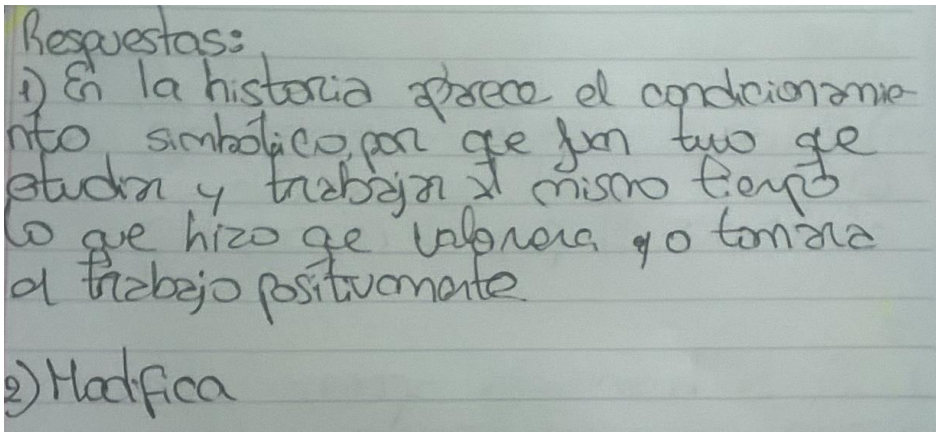 Respuestas:
1) En la historia aparece el condicionamie
nto simbólico, por que Juan tuvo qe
etudiar y trabajar al mismo tiempo
lo que hizo qe valorara y o tomara
al trabajo positivamente
2) Modifica